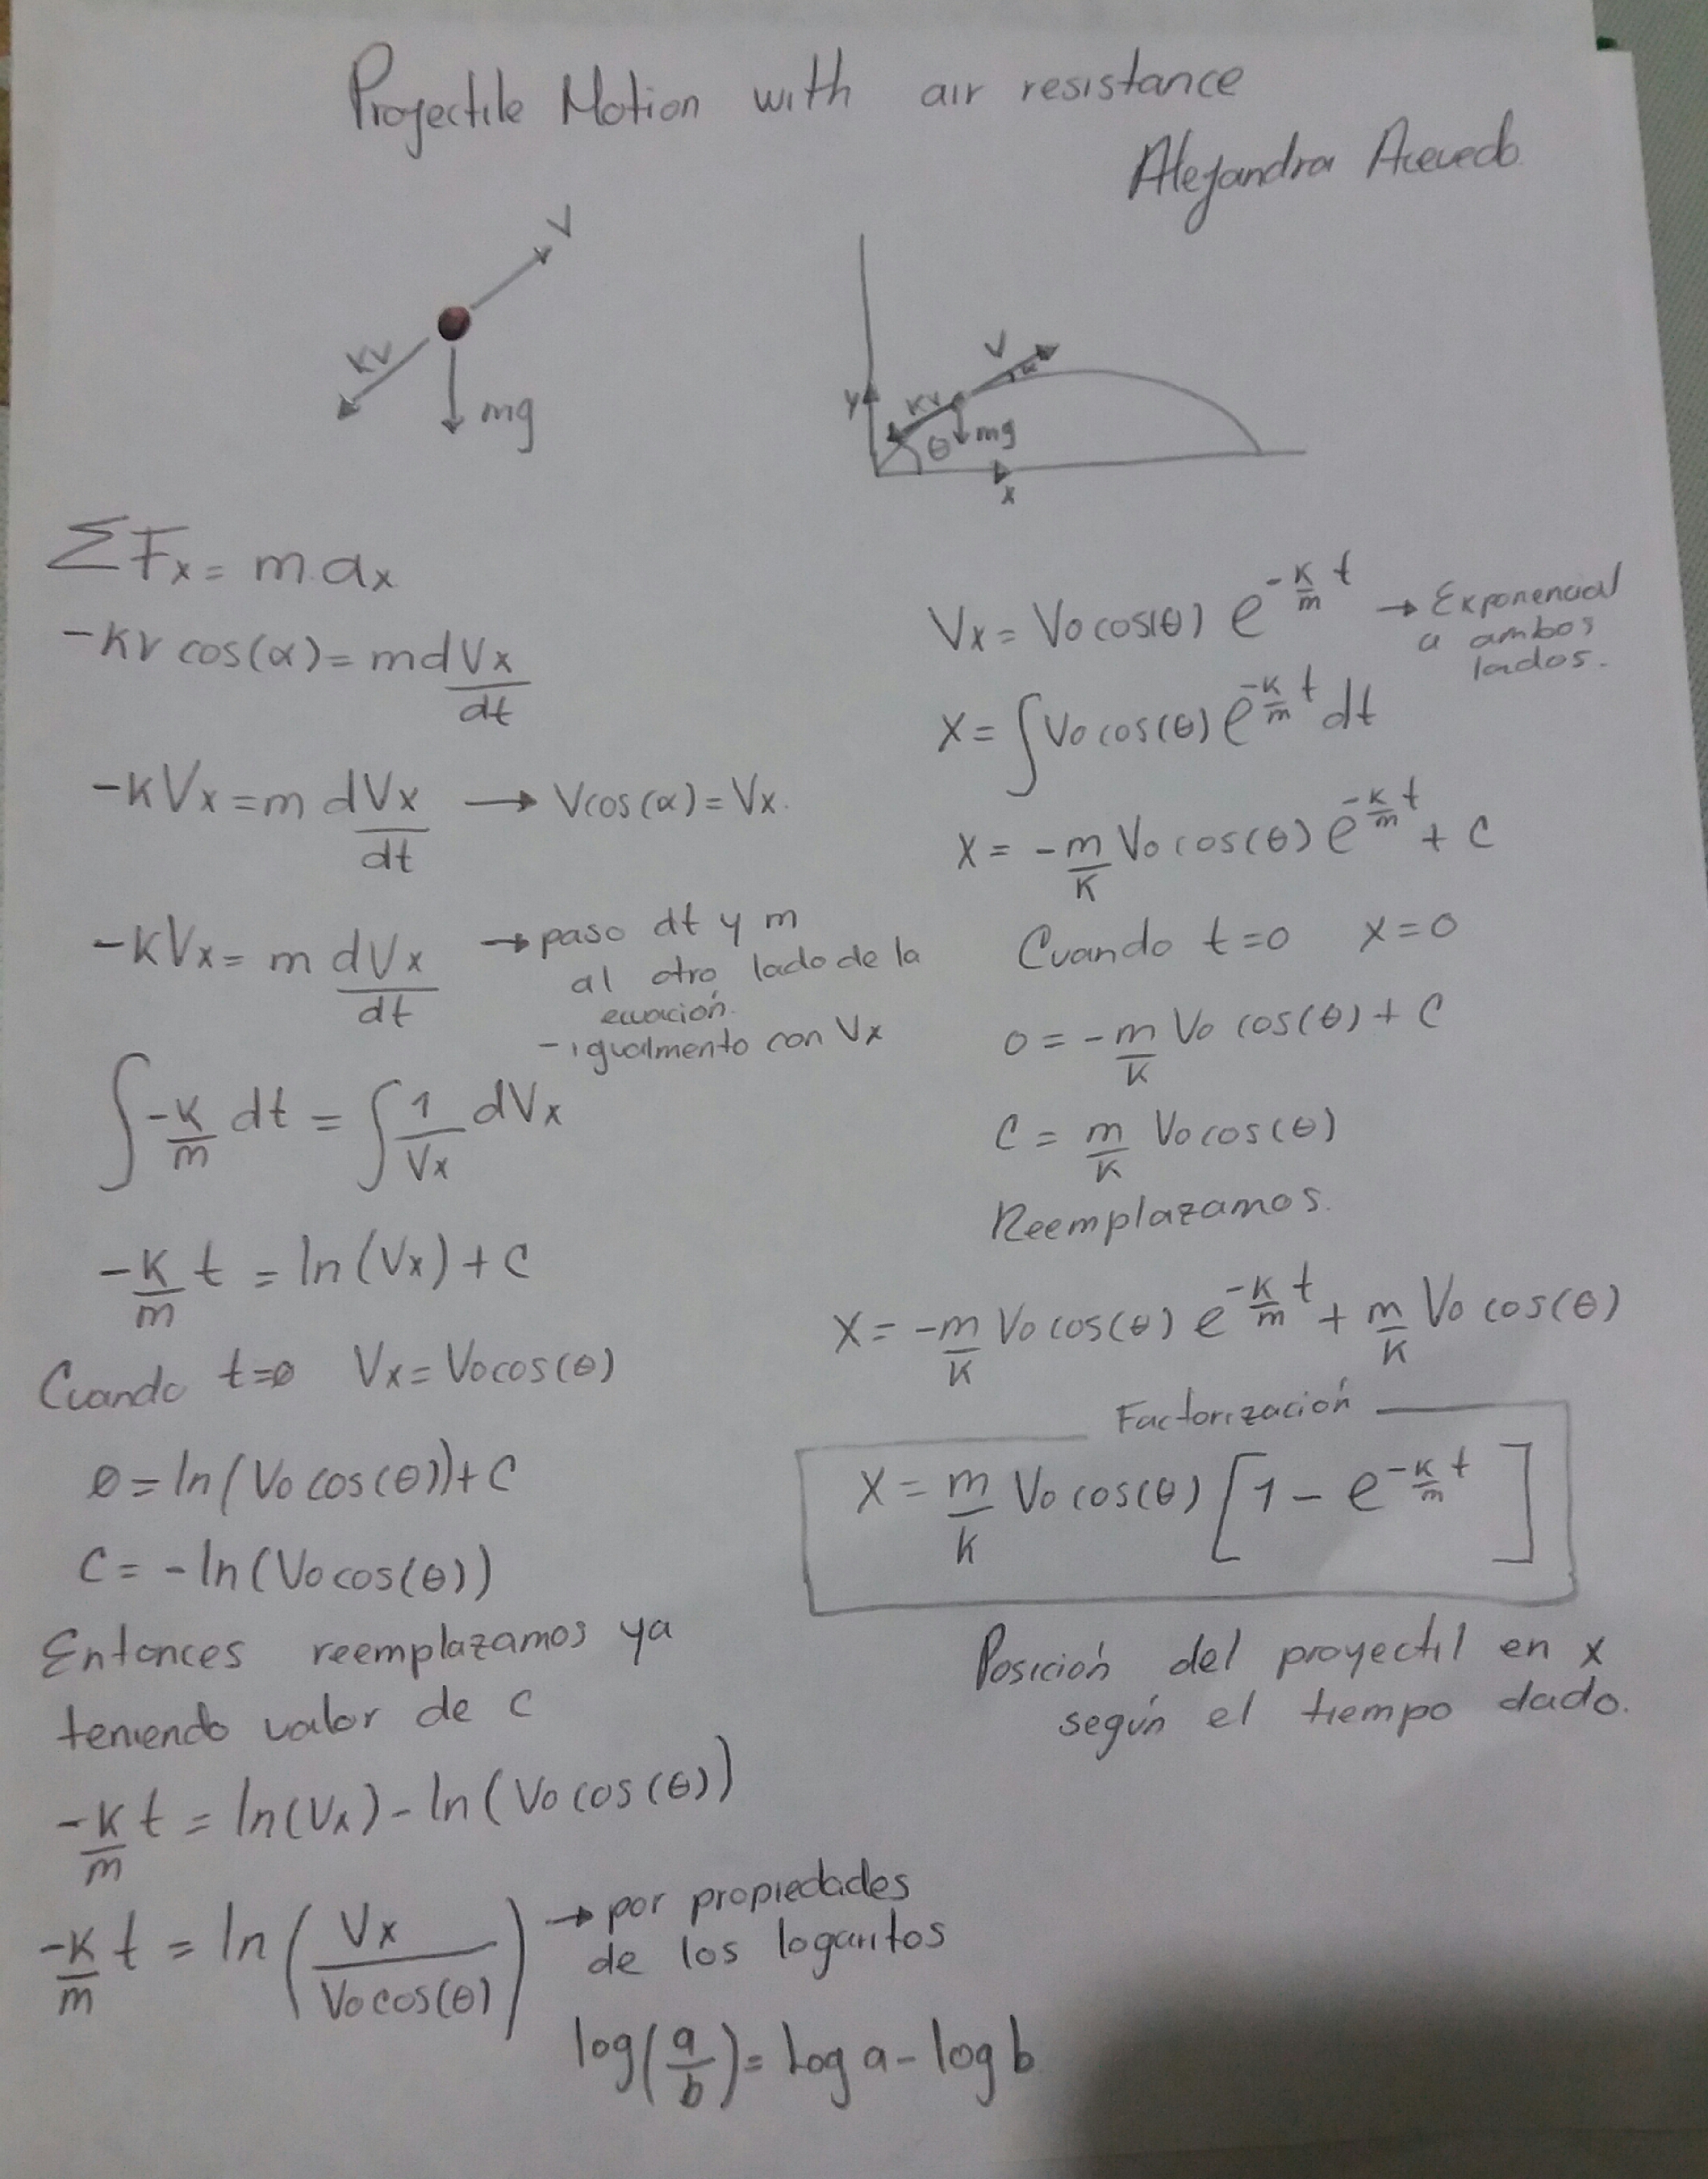 Projectile Motion with air resistance
Alejandra Acevedo
V
KV
mg
V
α
KV
mg
θ
y
x
ΣFx = m.ax
-KV cos(α) = m dVx/dt
-KVx = m dVx/dt → Vcos(α) = Vx.
-KVx = m dVx/dt → paso dt y m
al otro lado de la
ecuación.
- igualmento con Vx
∫ -K/m dt = ∫ 1/Vx dVx
-K/m t = ln(Vx) + C
Cuando t=0 Vx = Vo cos(θ)
0 = ln(Vo cos(θ)) + C
C = -ln(Vo cos(θ))
Entonces reemplazamos ya
teniendo valor de C
-K/m t = ln(Vx) - ln(Vo cos(θ))
-K/m t = ln(Vx / Vo cos(θ)) → por propiedades
de los logaritos
log(a/b) = Log a - log b
Vx = Vo cos(θ) e^(-K/m t) → Exponencial
a ambos
lados.
X = ∫ Vo cos(θ) e^(-K/m t) dt
X = -m/K Vo cos(θ) e^(-K/m t) + C
Cuando t=0 x=0
0 = -m/K Vo cos(θ) + C
C = m/K Vo cos(θ)
Reemplazamos.
X = -m/K Vo cos(θ) e^(-K/m t) + m/K Vo cos(θ)
Factorización
X = m/K Vo cos(θ) [1 - e^(-K/m t)]
Posición del proyectil en x
según el tiempo dado.